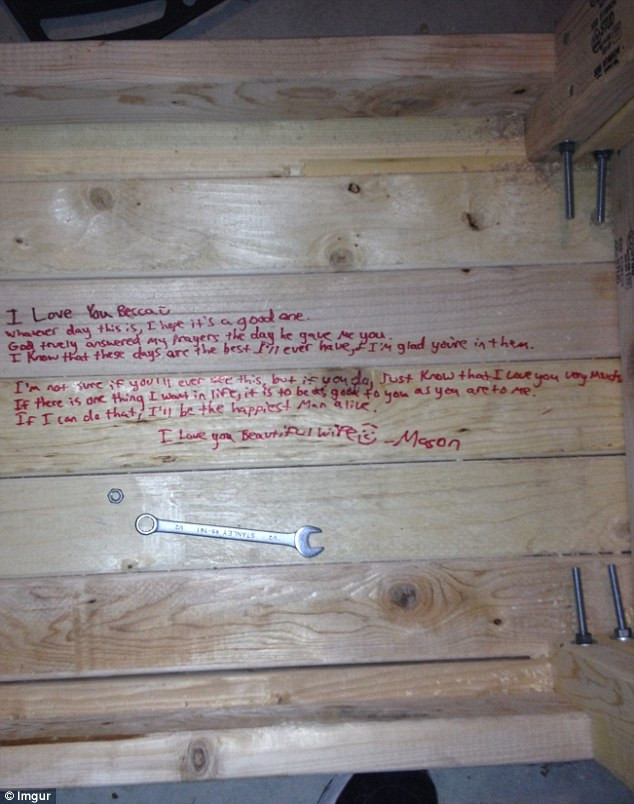 I Love You Becca
whatever day this is, I hope it's a good one.
God truely answered my prayers the day he gave me you.
I know that these days are the best I'll ever have, & I'm glad you're in them.
I'm not sure if you'll ever see this, but if you do, Just know that I love you very much.
If there is one thing I want in life, it is to be as good to you as you are to me.
If I can do that, I'll be the happiest man alive.
I love you Beautiful wife
-Mason
1/2 STANLEY 1/2
© Imgur